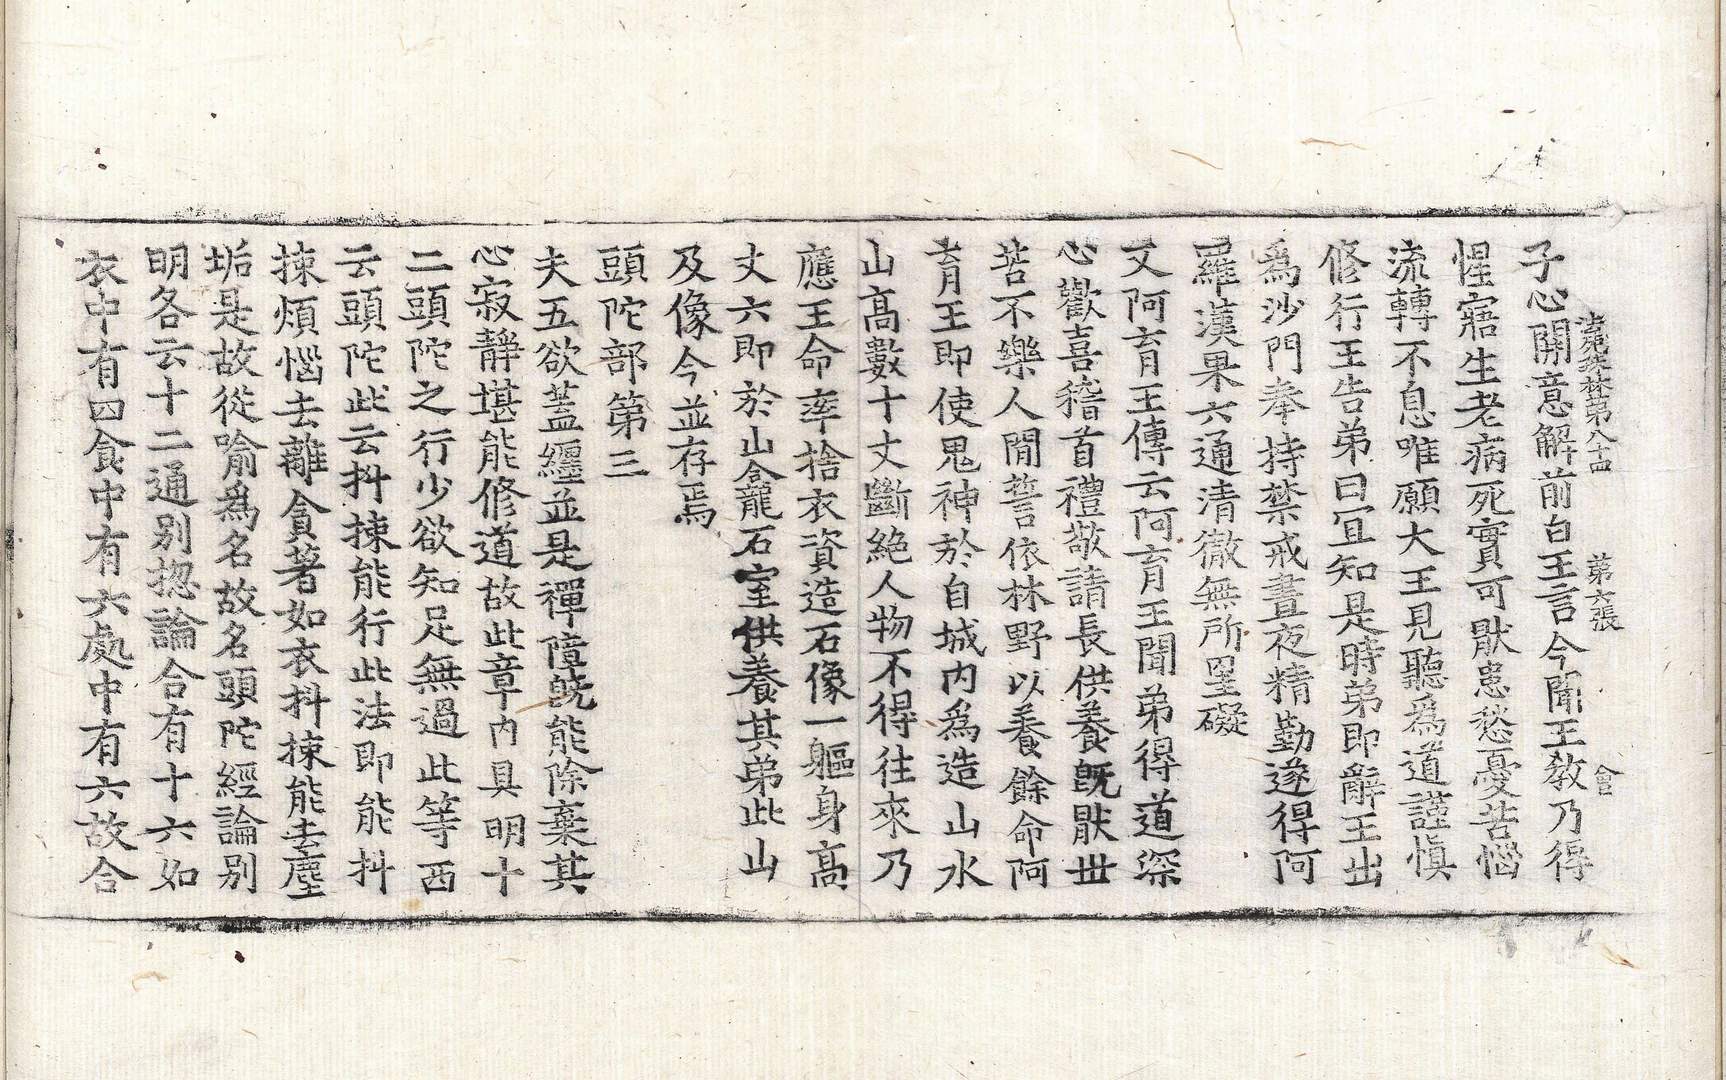 法苑珠林第八十四　第六張　會
子心開意解前白王言今聞王教乃得
惺寤生老病死實可猒患愁憂苦惱
流轉不息唯願大王見聽爲道謹慎
修行王告弟曰宜知是時弟即辭王出
爲沙門奉持禁戒晝夜精勤遂得阿
羅漢果六通清徹無所罣礙
又阿育王傳云阿育王聞弟得道深
心歡喜稽首禮敬請長供養旣猒世
苦不樂人閒誓依林野以養餘命阿
育王即使鬼神於自城内爲造山水
山高數十丈斷絶人物不得往來乃
應王命率捨衣資造石像一軀身高
丈六即於山龕石室供養其弟此山
及像今並存焉
頭陀部第三
夫五欲蓋纏並是禪障旣能除棄其
心寂靜堪能修道故此章内具明十
二頭陀之行少欲知足無過此等西
云頭陀此云抖揀能行此法即能抖
揀煩惱去離貪著如衣抖揀能去塵
垢是故從喻爲名故名頭陀經論别
明各云十二通别揔論合有十六如
衣中有四食中有六處中有六故合